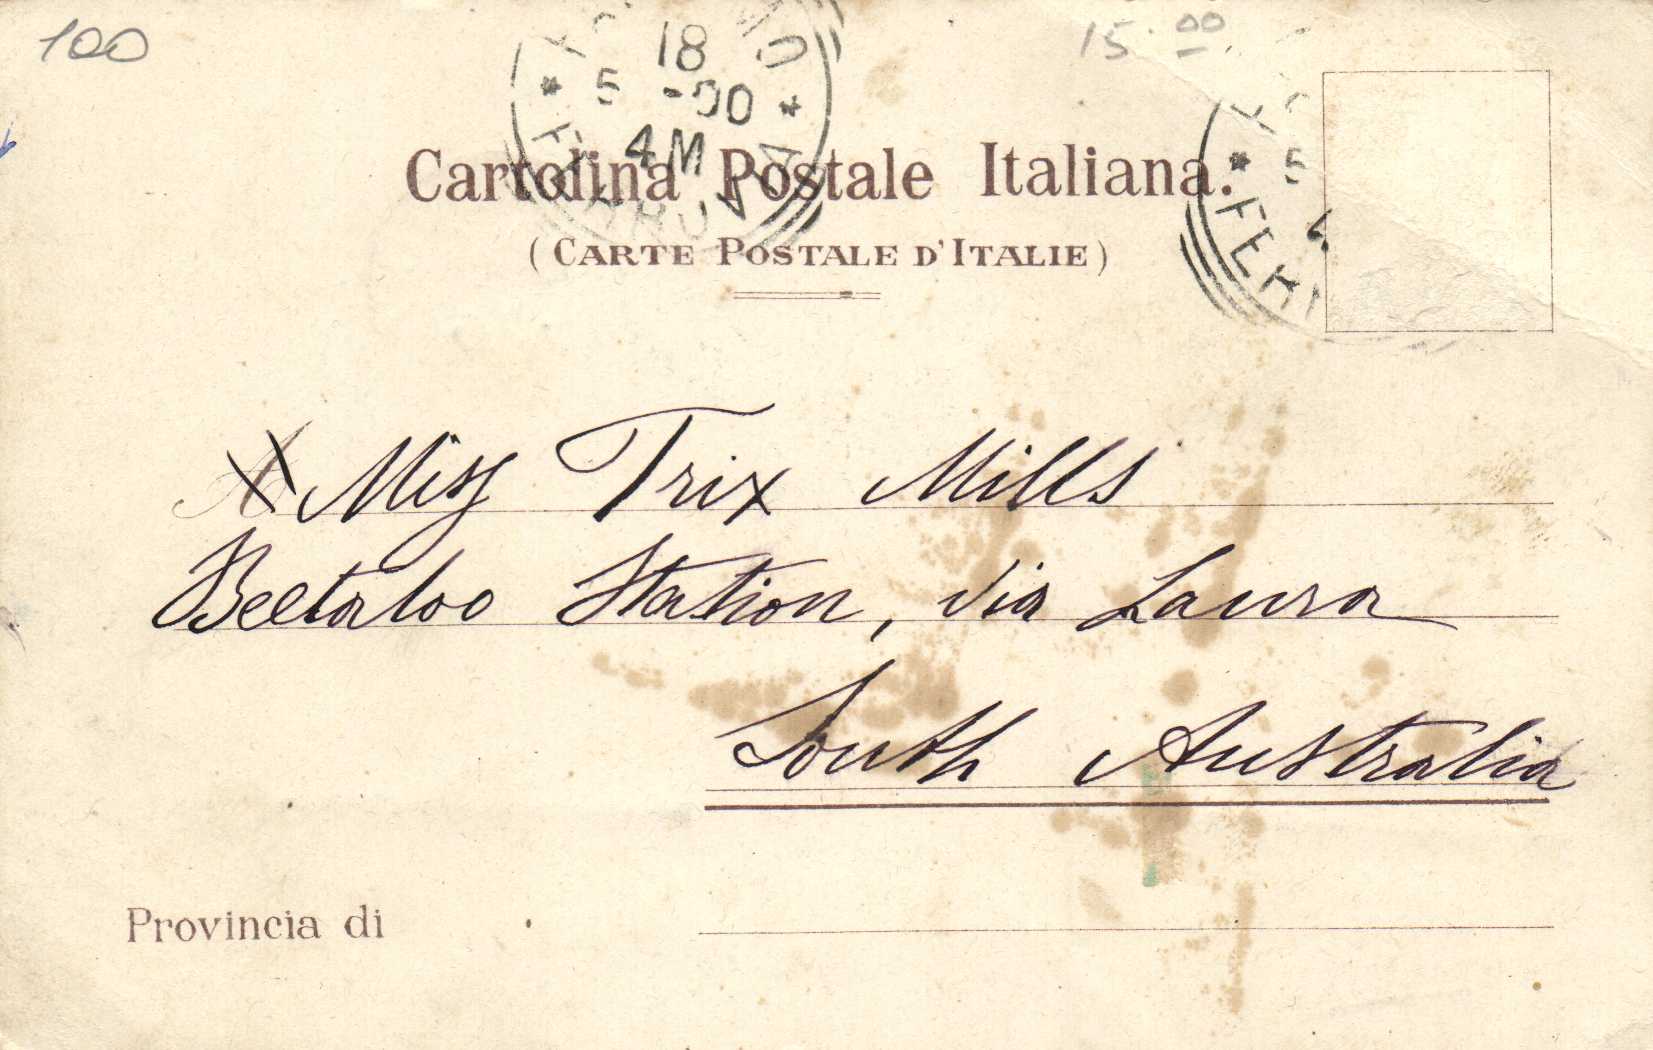 100
15.00
18
5 -00
4M
Cartolina Postale Italiana.
(CARTE POSTALE D'ITALIE)
Miss Trix Mills
Beetaloo Station, via Laura
South Australia
Provincia di